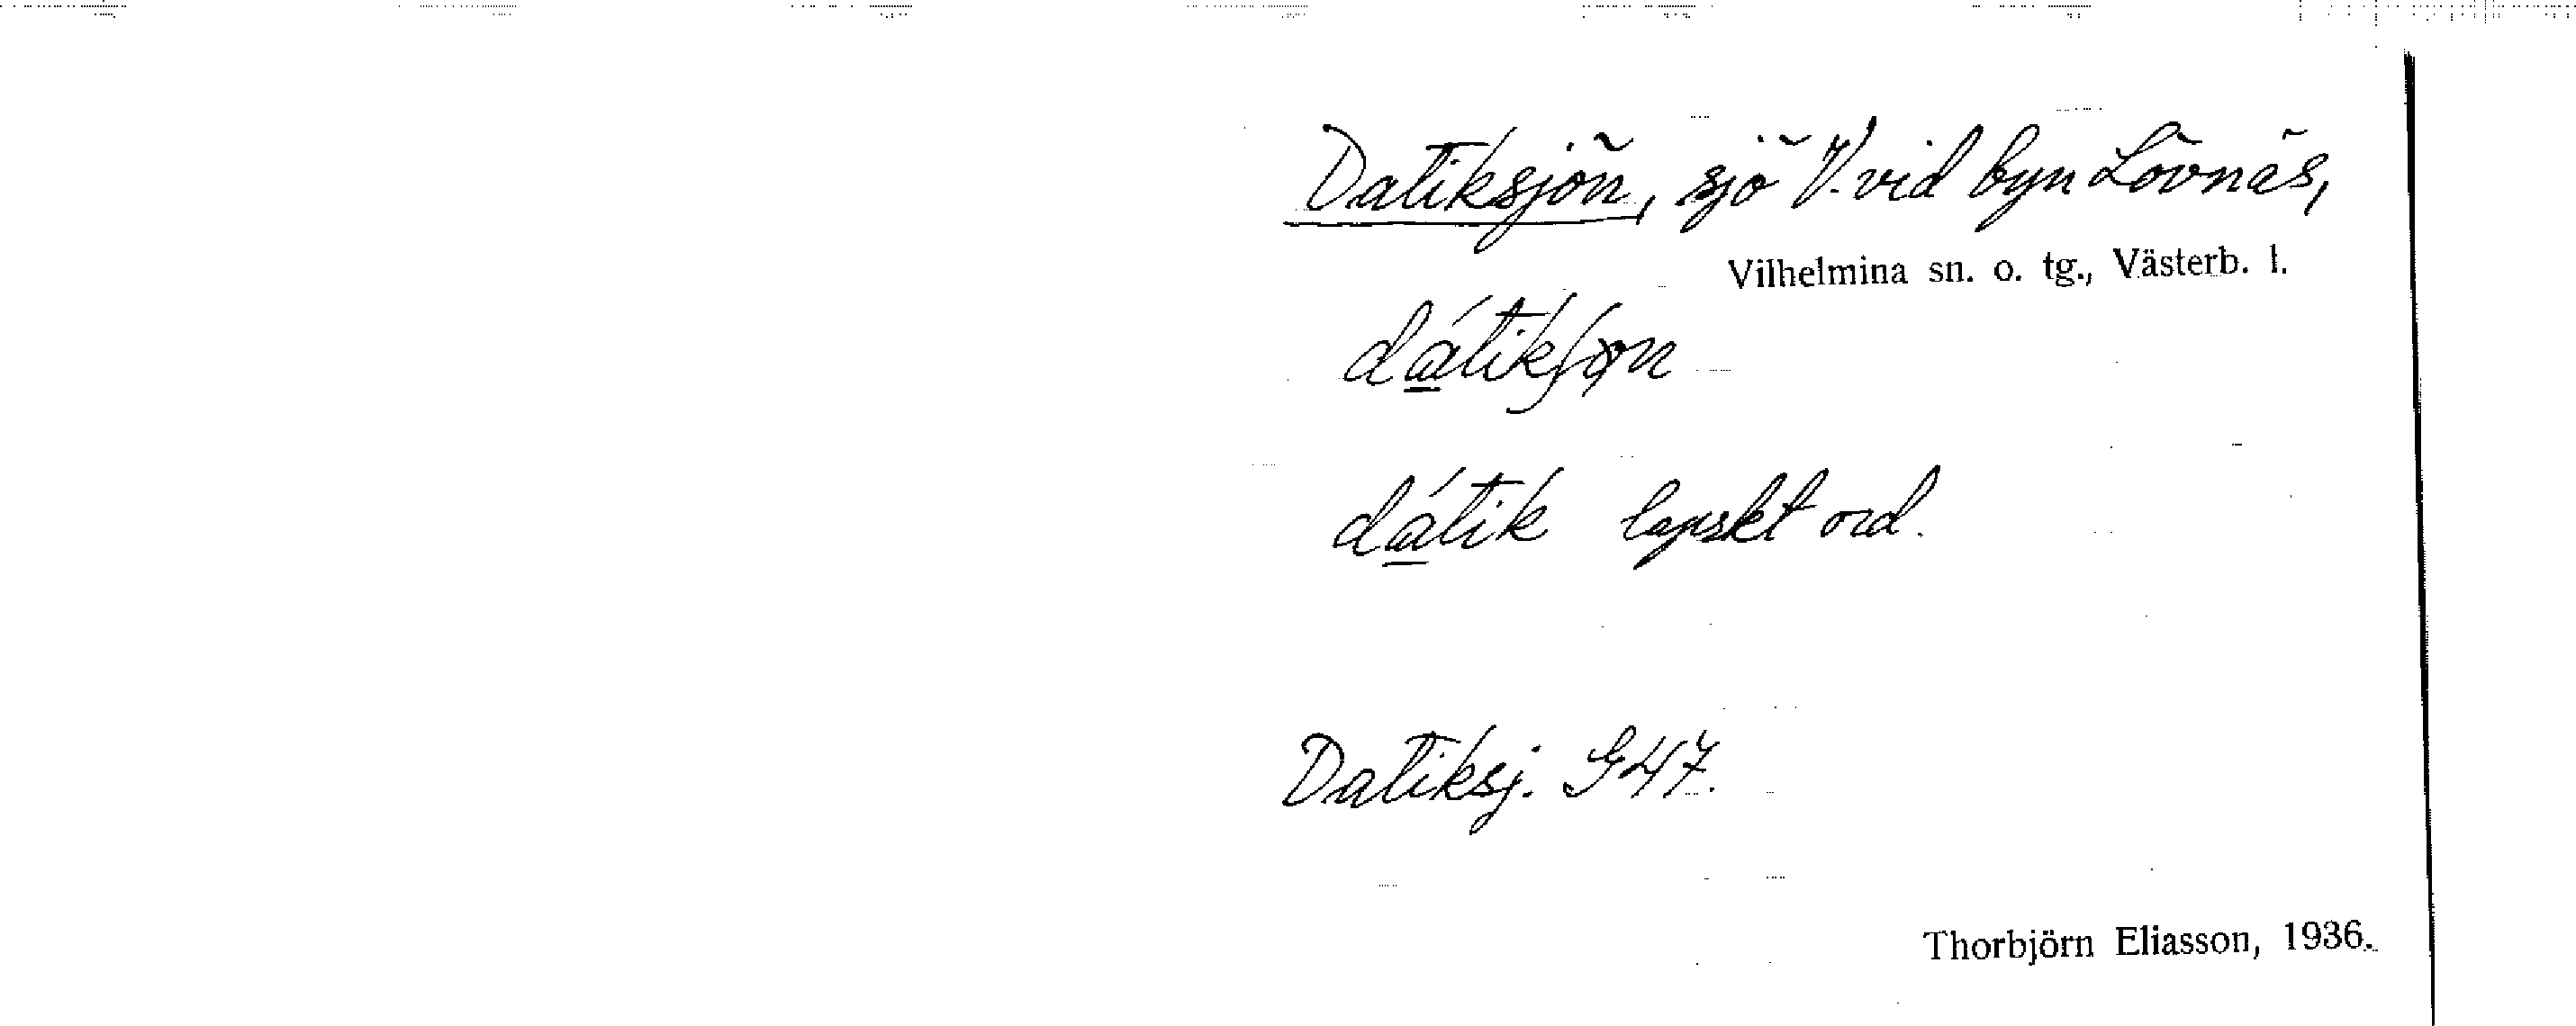 Datiksjön, sjö V. vid byn Lövnäs,
Vilhelmina sn. o. tg., Västerb. l.
dátikʃɷn
dátik lapskt ord.
Datiksj. G47.
Thorbjörn Eliasson, 1936.